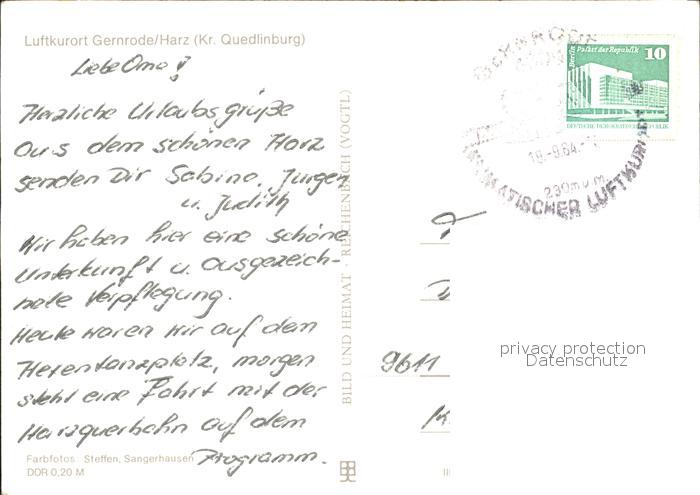 Luftkurort Gernrode/Harz (Kr. Quedlinburg)
Liebe Oma!
Herzliche Urlaubsgrüße
aus dem schönen Harz
senden Dir Sabine, Jürgen
u. Judith
Wir haben hier eine schöne
Unterkunft u. ausgezeich-
nete Verpflegung.
Heute waren wir auf dem
Hexentanzplatz, morgen
steht eine Fahrt mit der
Harzquerbahn auf dem
Programm.
Farbfotos Steffen, Sangerhausen
DDR 0,20 M
BILD UND HEIMAT · REICHENBACH (VOGTL)
GERNRODE
18.-9.84.-
230m ü.m.
KLIMATISCHER LUFTKURORT
Berlin Palast der Republik
10
DEUTSCHE DEMOKRATISCHE REPUBLIK
privacy protection
Datenschutz
9611